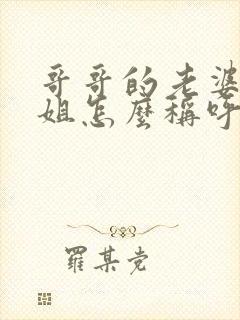 哥哥的老婆
姐怎麼稱呼
羅某党